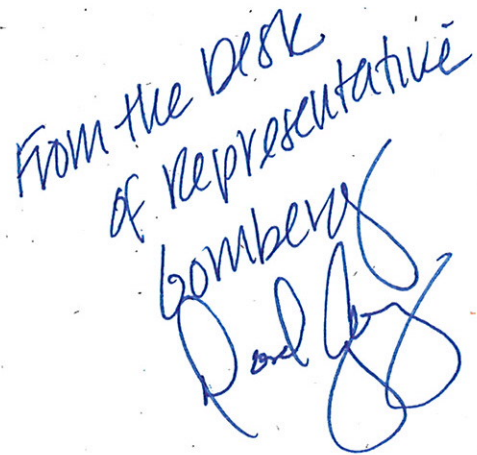 From the Desk
of Representative
Gomberg